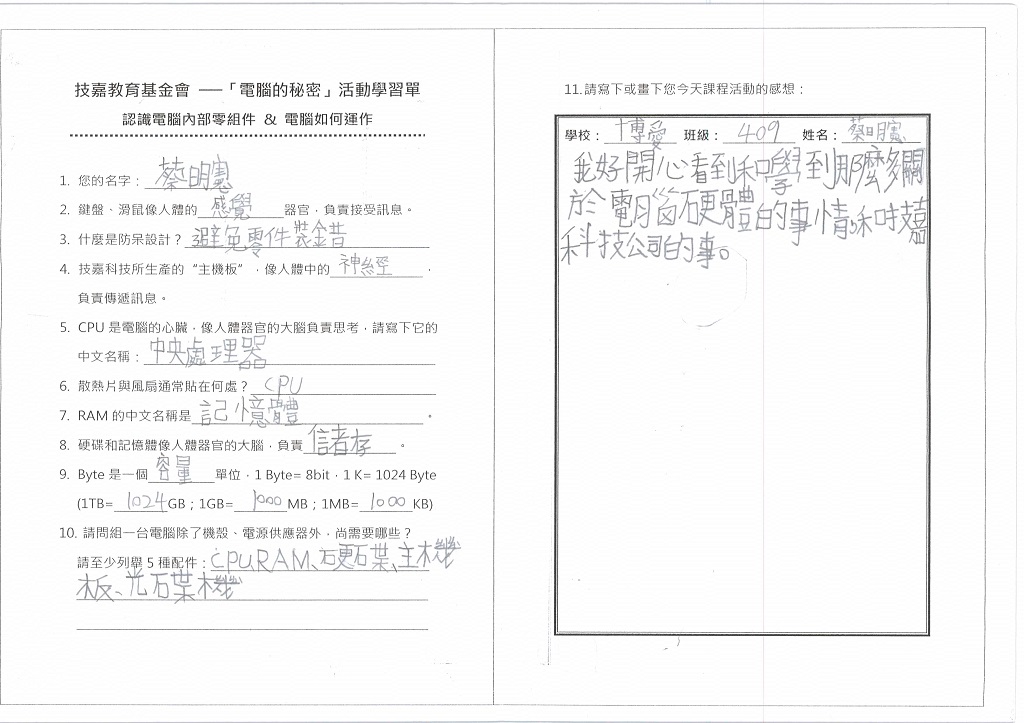 技嘉教育基金會 ──「電腦的秘密」活動學習單
認識電腦內部零組件 & 電腦如何運作
1. 您的名字：蔡明憲
2. 鍵盤、滑鼠像人體的感覺器官，負責接受訊息。
3. 什麼是防呆設計？避免零件裝錯
4. 技嘉科技所生產的“主機板”，像人體中的神經，
負責傳遞訊息。
5. CPU 是電腦的心臟，像人體器官的大腦負責思考，請寫下它的
中文名稱：中央處理器
6. 散熱片與風扇通常貼在何處？CPU
7. RAM 的中文名稱是記憶體。
8. 硬碟和記憶體像人體器官的大腦，負責儲存。
9. Byte 是一個容量單位，1 Byte= 8bit，1 K= 1024 Byte
(1TB=1024GB；1GB=1000MB；1MB=1000KB)
10. 請問組一台電腦除了機殼、電源供應器外，尚需要哪些？
請至少列舉 5 種配件：CPU、RAM、硬碟、主機
板、光碟機
11.請寫下或畫下您今天課程活動的感想：
學校：博愛 班級：409 姓名：蔡明憲
我好開心看到和學到那麼多關
於電腦硬體的事情和技嘉
科技公司的事。